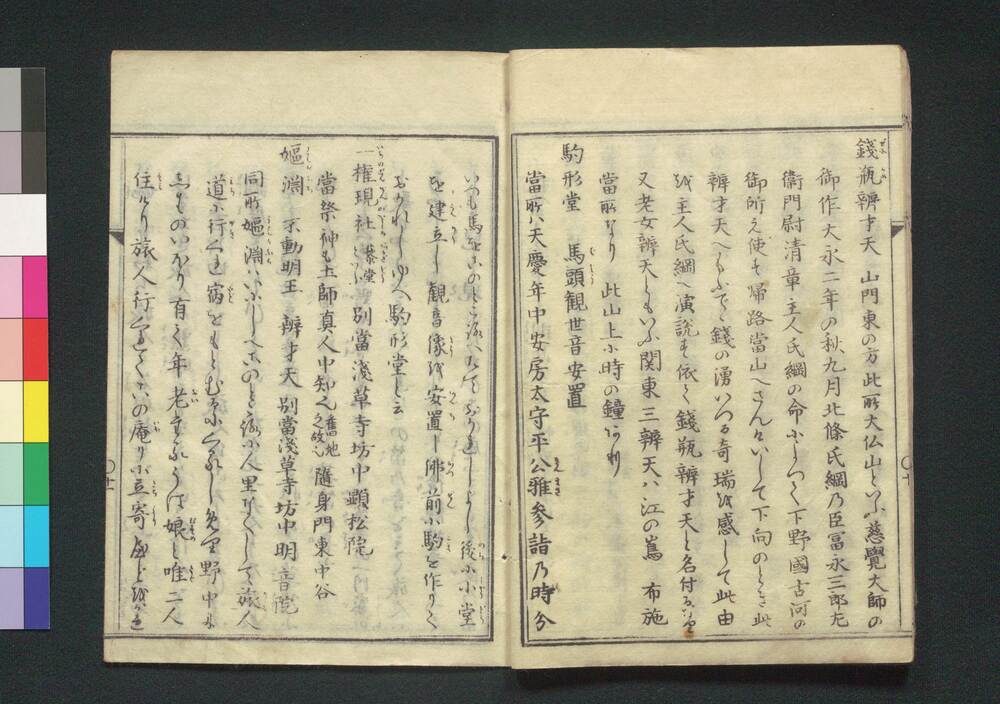 錢瓶辨才天 山門東の方此所大仏山といふ慈覺大師の
御作大永二年の秋九月北條氏綱乃臣冨永三郎左
衛門尉清章主人氏綱の命によつて下野國古河の
御所え使す帰路當山へさんけいして下向のとき此
辨才天へもふでゝ錢の湧いつる奇瑞を感して此由
を主人氏綱へ演説す依て錢瓶辨才天と名付るなり
又老女辨天ともいふ関東三辨天ハ江の嶌 布施
當所なり 此山上小時の鐘あり
駒形堂 馬頭観世音安置
當所ハ天慶年中安房太守平公雅参詣乃時分
いつも馬をこのところへたて
後に小堂
を建立し観音像を安置し佛前に駒を作りて
おかれしゆへ駒形堂と云
一權現社 別當淺草寺坊中顕松院
當祭神も土師真人中知也舊地 隨身門東中谷
嫗淵 不動明王 辨才天 別當淺草寺坊中明音院
同所嫗淵ハいにしへこのところに人里なくして旅人
道に行くれ宿をもとむるに 野中に
いほり有て年老たるうば娘と唯二人
住けり旅人行
の庵りに立寄